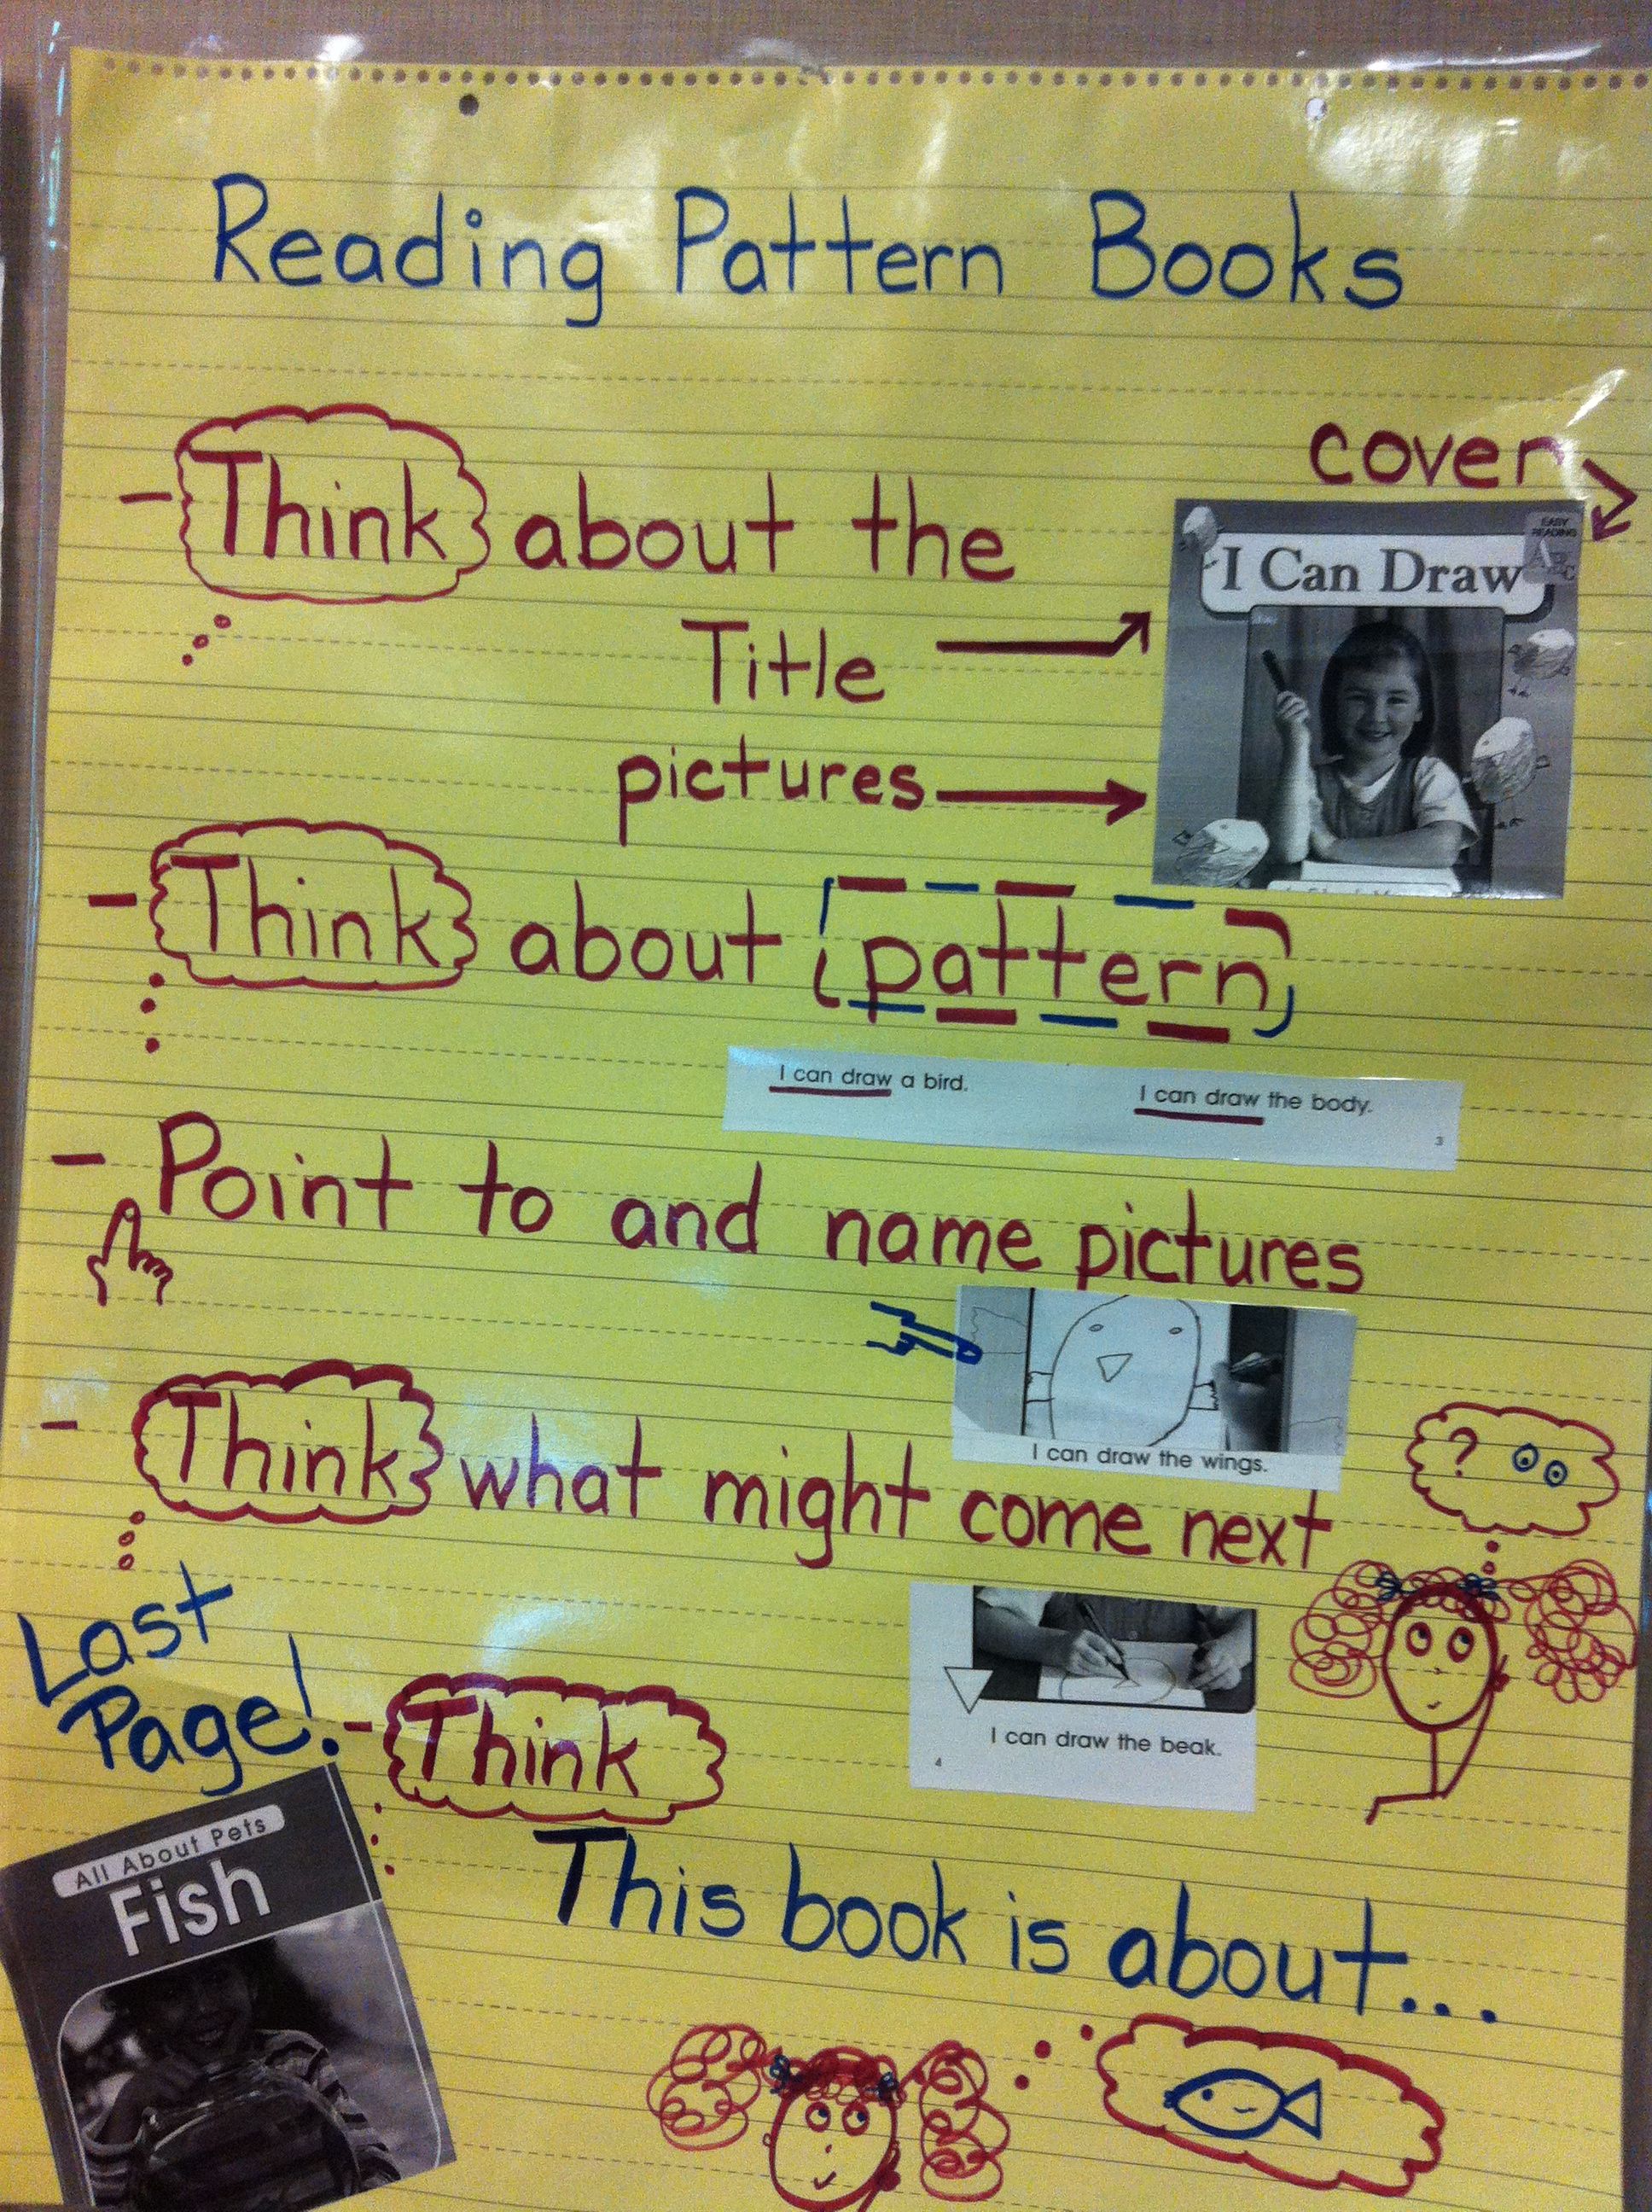 Reading Pattern Books
cover
- Think about the
EASY
READING
ABC
I Can Draw
Title
pictures
- Think about pattern
I can draw a bird.
I can draw the body.
3
- Point to and name pictures
I can draw the wings.
- Think what might come next
?
Last
Page!
I can draw the beak.
4
- Think
All About Pets
Fish
This book is about...